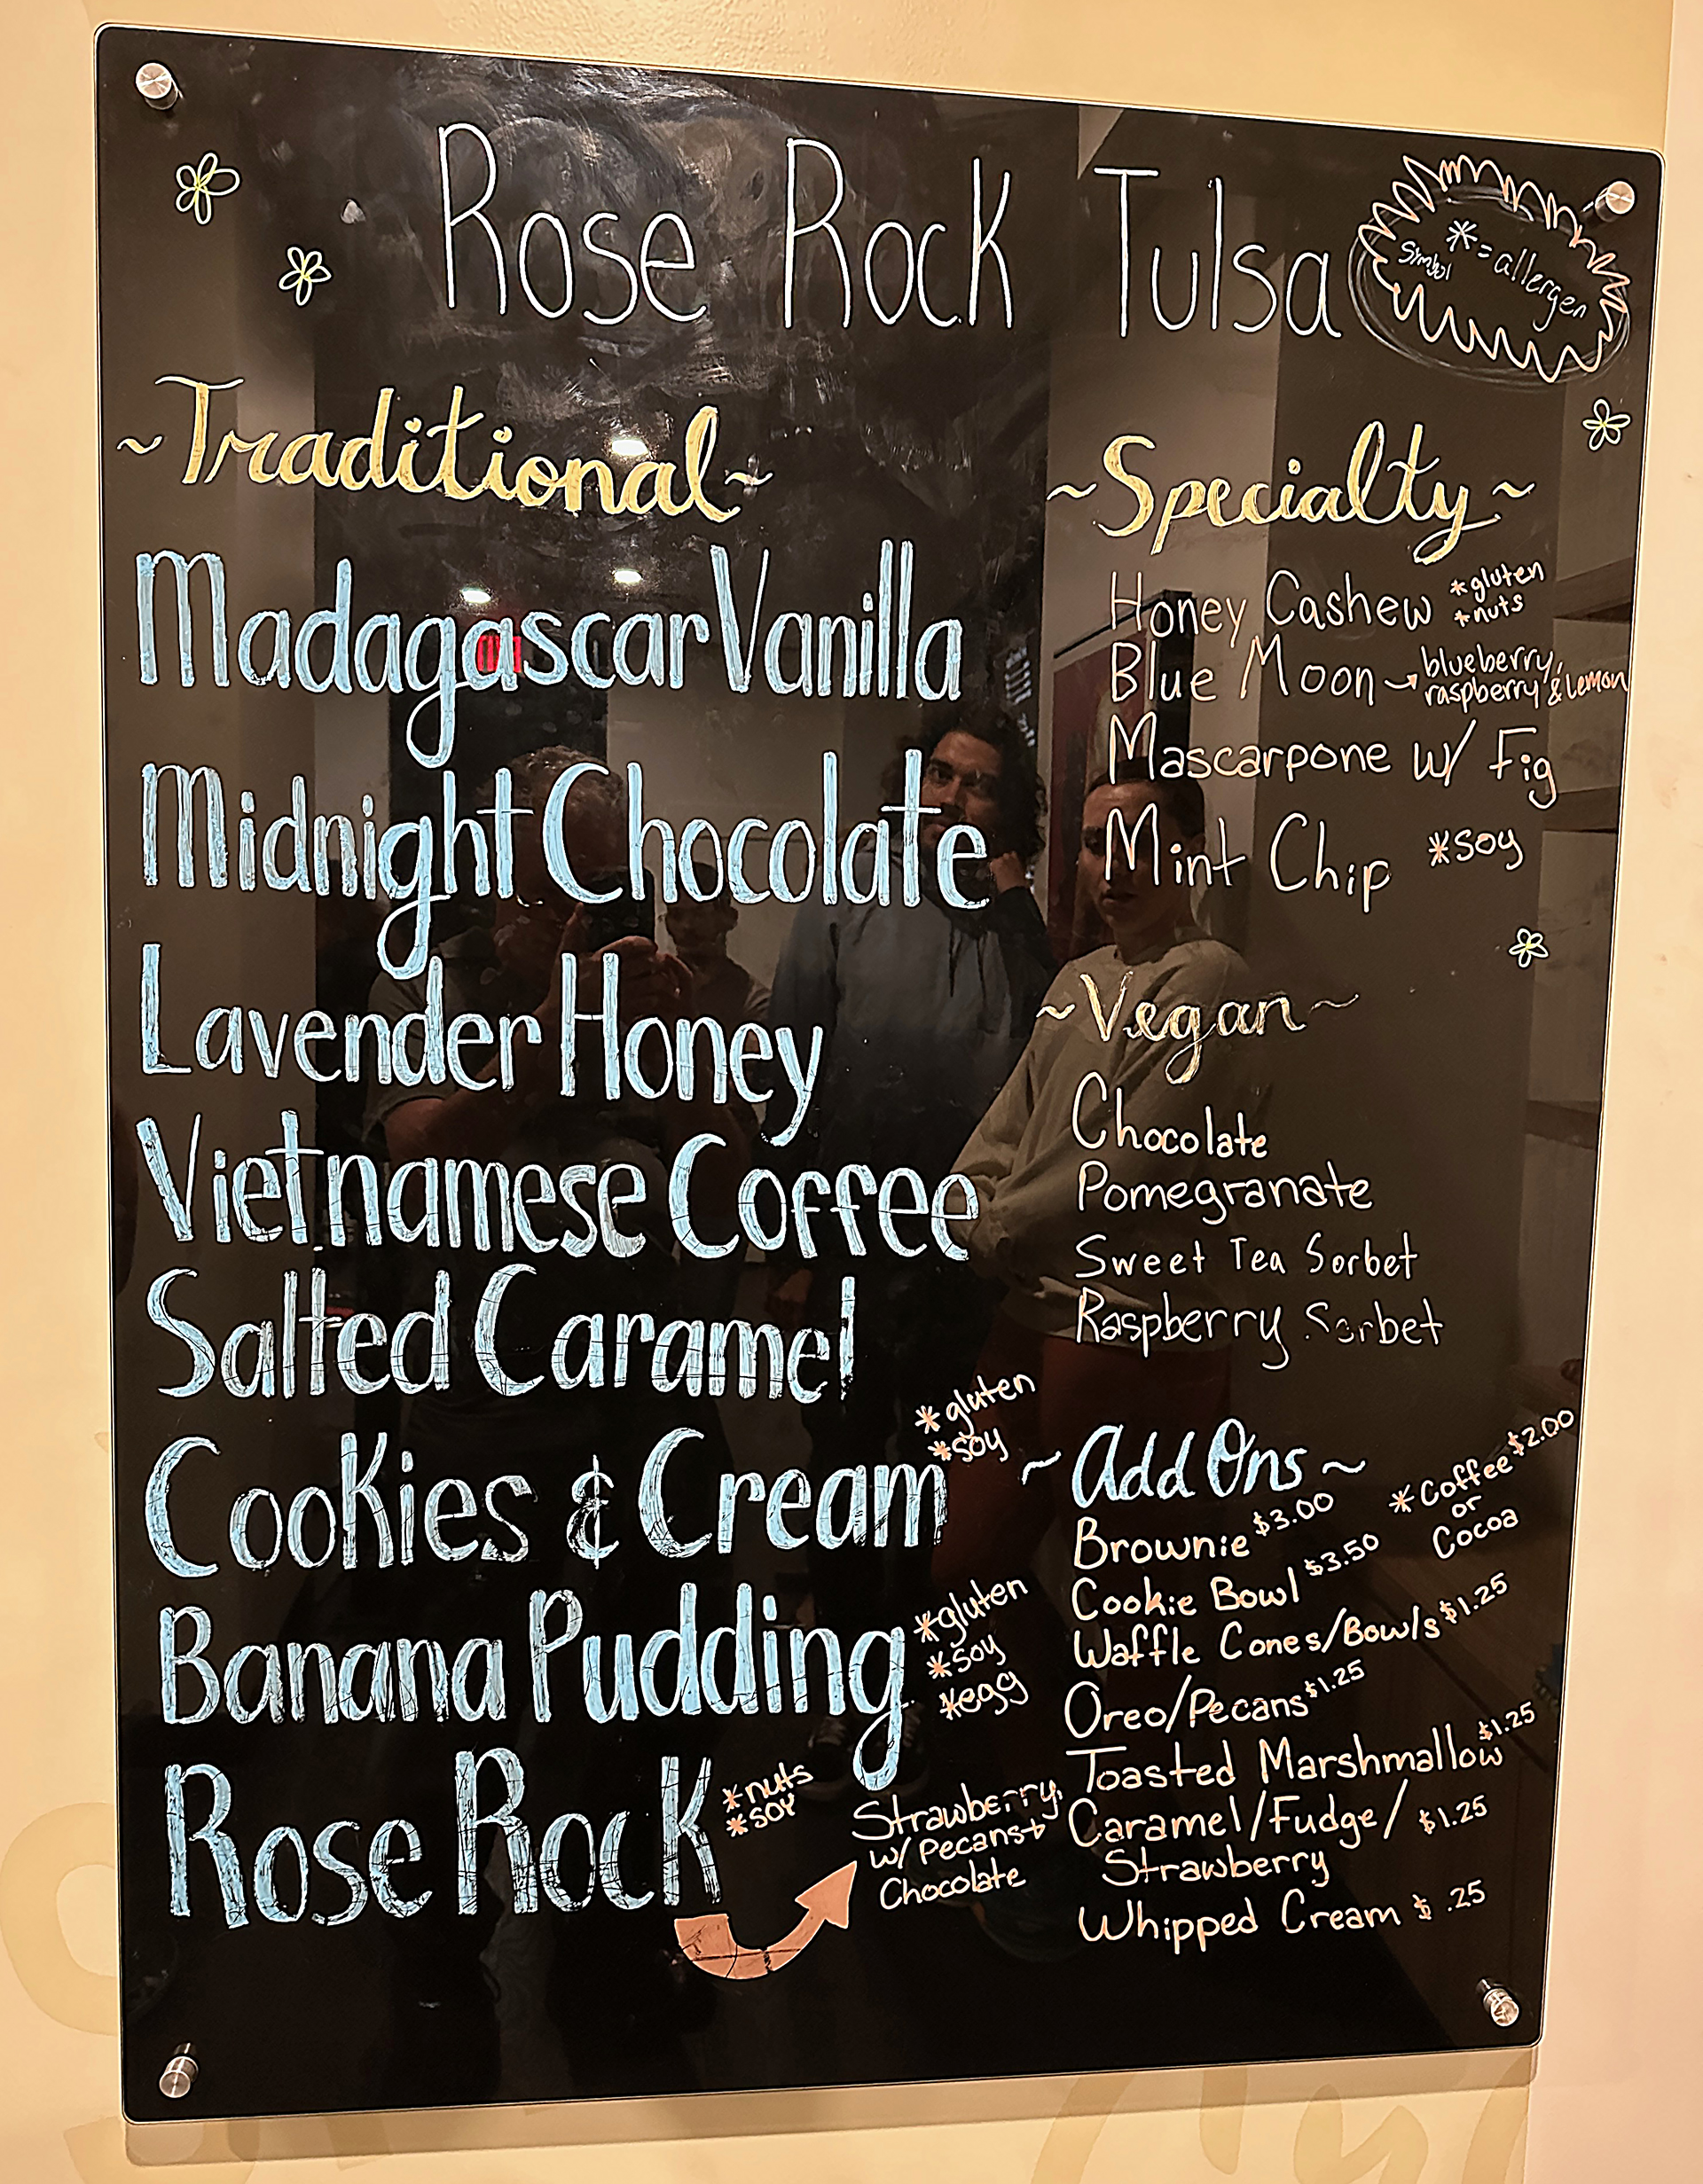 Rose Rock Tulsa
* = allergen
symbol
~Traditional~
Madagascar Vanilla
Midnight Chocolate
Lavender Honey
Vietnamese Coffee
Salted Caramel
Cookies & Cream
*gluten
*soy
Banana Pudding
*gluten
*soy
*egg
Rose Rock
*nuts
*soy
Strawberry,
w/ Pecans +
Chocolate
~Specialty~
Honey Cashew *gluten
*nuts
Blue Moon → blueberry,
raspberry & lemon
Mascarpone w/ Fig
Mint Chip *soy
~Vegan~
Chocolate
Pomegranate
Sweet Tea Sorbet
Raspberry Sorbet
~Add Ons~
Brownie $3.00
*Coffee $2.00
or
Cocoa
Cookie Bowl $3.50
Waffle Cones/Bowls $1.25
Oreo/Pecans $1.25
Toasted Marshmallow $1.25
Caramel/Fudge/ $1.25
Strawberry
Whipped Cream $ .25